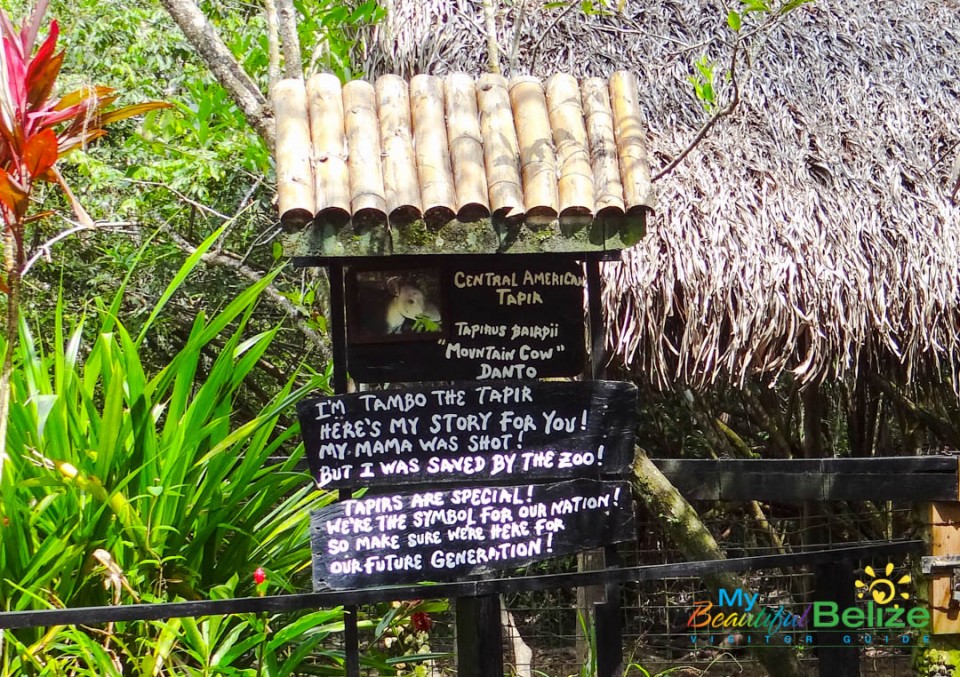 CENTRAL AMERICAN
TAPIR
TAPIRUS BAIRDII
"MOUNTAIN COW"
DANTO
I'M TAMBO THE TAPIR
HERE'S MY STORY FOR YOU!
MY MAMA WAS SHOT!
BUT I WAS SAVED BY THE ZOO!
TAPIRS ARE SPECIAL!
WE'RE THE SYMBOL FOR OUR NATION!
SO MAKE SURE WE'RE HERE FOR
OUR FUTURE GENERATION!
My
Beautiful Belize
VISITOR GUIDE